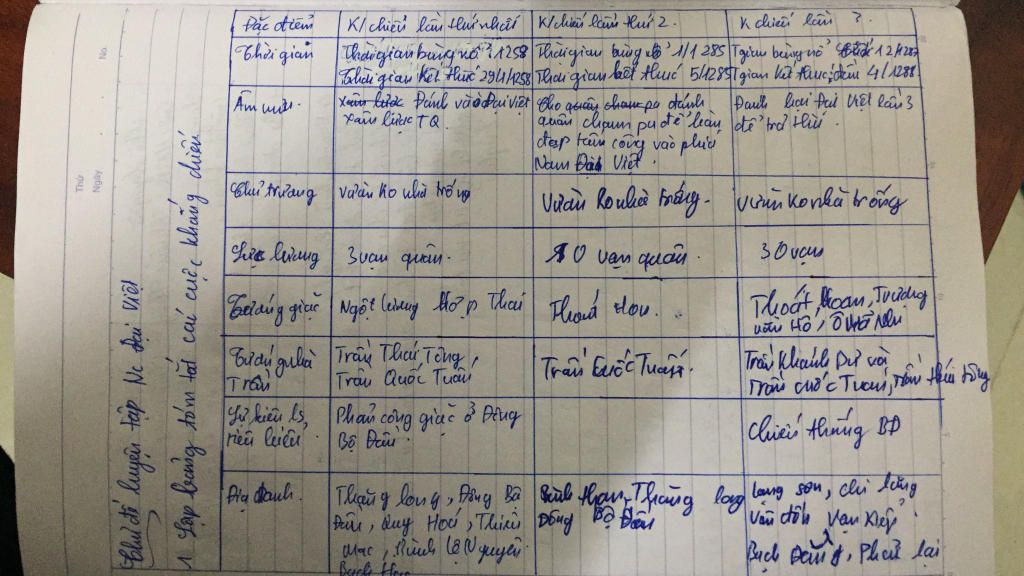 Chủ đề luyện tập Nc Đại Việt
1 Lập bảng tóm tắt các cuộc kháng chiến
Thứ
Ngày
No.
Đặc điểm
K/chiến lần thứ nhất
K/chiến lần thứ 2.
K chiến lần 3
Thời gian
Thời gian bùng nổ: 1.1258
Thời gian kết thúc 29/1/1258
Thời gian bùng nổ 1/1285
Thời gian kết thúc 5/1285
Tgian bùng nổ 12/1287
Tgian kết thúc: đến 4/1288
Âm mưu
xâm lược Đánh vào Đại Việt
xâm lược TQ.
Cho quân champa đánh
quân champa để làm
đạp tấn công vào phía
Nam Đại Việt.
Đánh bại Đại Việt lần 3
để trả thù
Chủ trương
vườn ko nhà trống
Vườn ko nhà trống.
vườn ko nhà trống
Lực lượng
3 vạn quân.
10 vạn quân
30 vạn
Tướng giặc
Ngột Lương Hợp Thai
Thoát Hoan
Thoát Hoan, Trương
văn Hổ, Ô Mã Nhi
Tướng nhà
Trần
Trần Thái Tông,
Trần Quốc Tuấn
Trần Quốc Tuấn.
Trần Khánh Dư và
Trần Quốc Tuấn, Trần
Sự kiện ls,
tiêu biểu
Phản công giặc ở Đông
Bộ Đầu.
Chiến thắng BĐ
Địa danh.
Thăng long, Đông Bộ
Đầu, Quy Hoá, Thiên
Mạc, Bình Lệ Nguyên
Bạch Hạc
Thăng long
Đông Bộ Đầu
Lạng sơn, chi lăng
Vân đồn Vạn Kiếp
Bạch Đằng, Phả lại